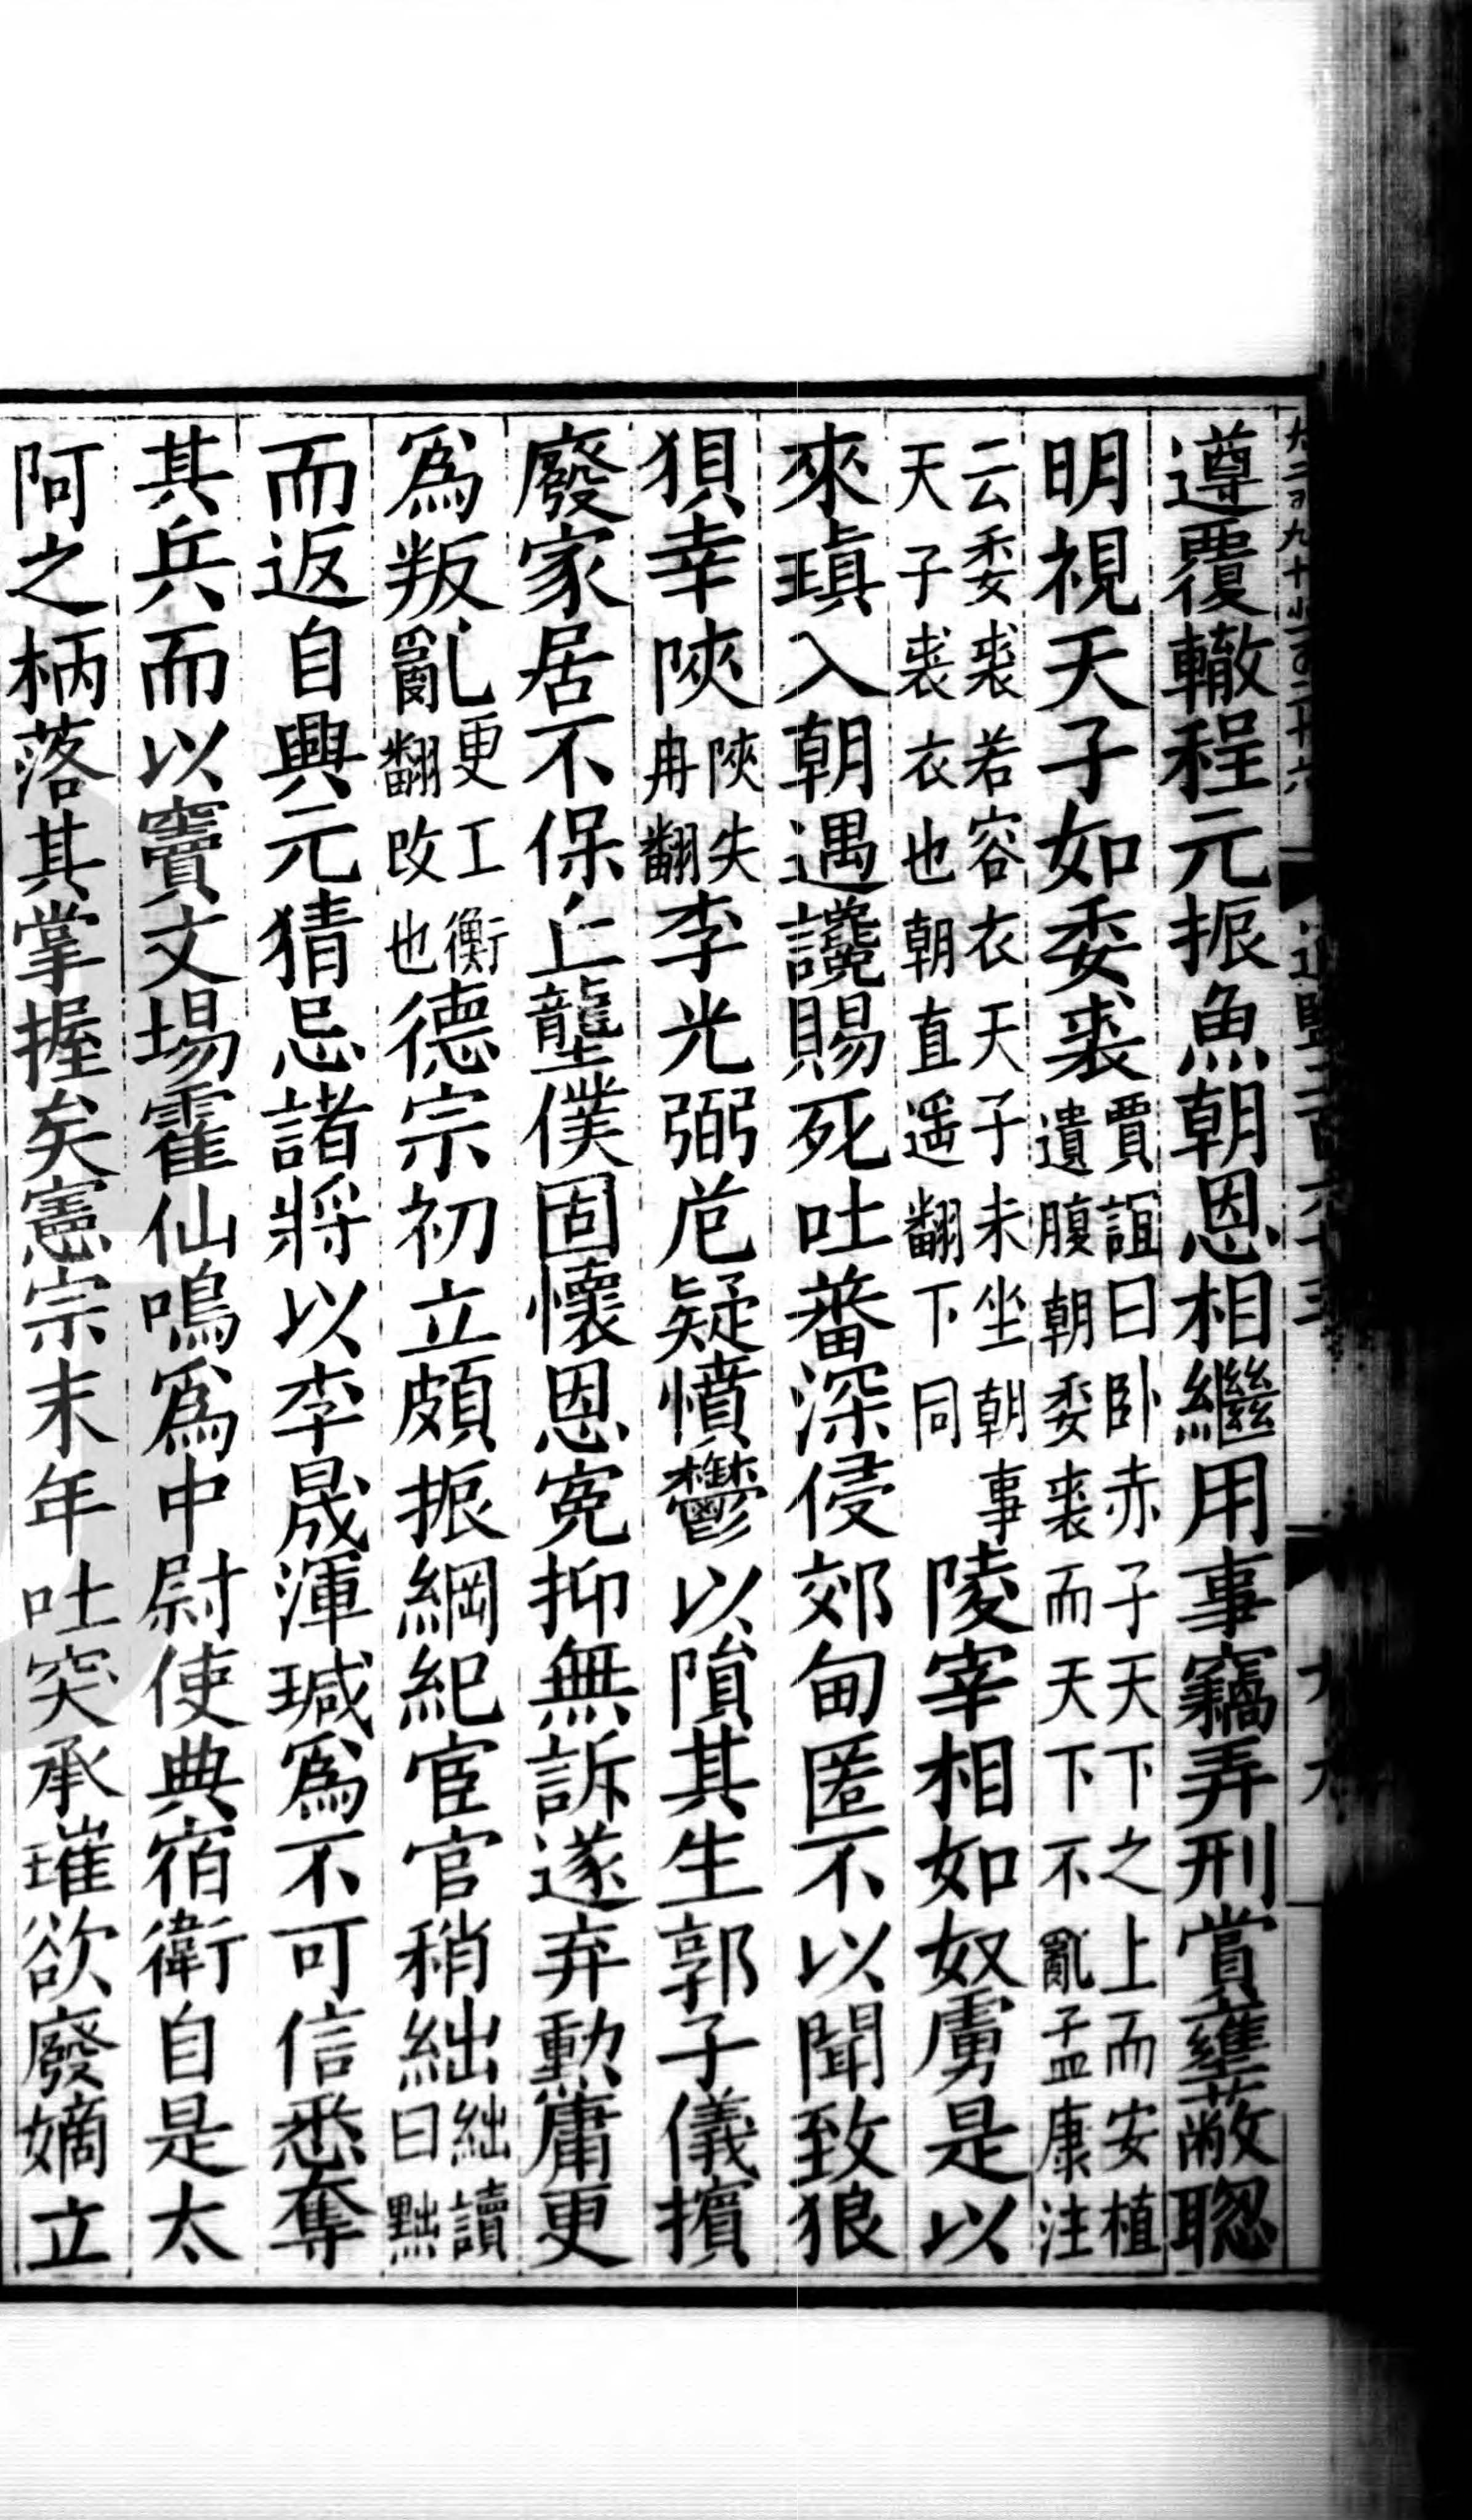 遵覆轍程元振魚朝恩相繼用事竊弄刑賞壅蔽聦
明視天子如委裘賈誼曰卧赤子天下之上而安植
遺腹朝委裘而天下不亂孟康注
云委裘若容衣天子未坐朝事
天子裘衣也朝直遥翻下同
陵宰相如奴虜是以
來瑱入朝遇讒賜死吐蕃深侵郊甸匿不以聞致狼
狽幸陜陜失
冉翻
李光弼危疑憤鬱以隕其生郭子儀擯
廢家居不保丘壟僕固懷恩寃抑無訴遂弃勳庸更
爲叛亂更工衡
翻改也
德宗初立頗振綱紀宦官稍絀絀讀
曰黜
而返自興元猜忌諸將以李晟渾瑊爲不可信悉奪
其兵而以竇文場霍仙鳴爲中尉使典宿衛自是太
阿之柄落其掌握矣憲宗末年吐突承璀欲廢嫡立